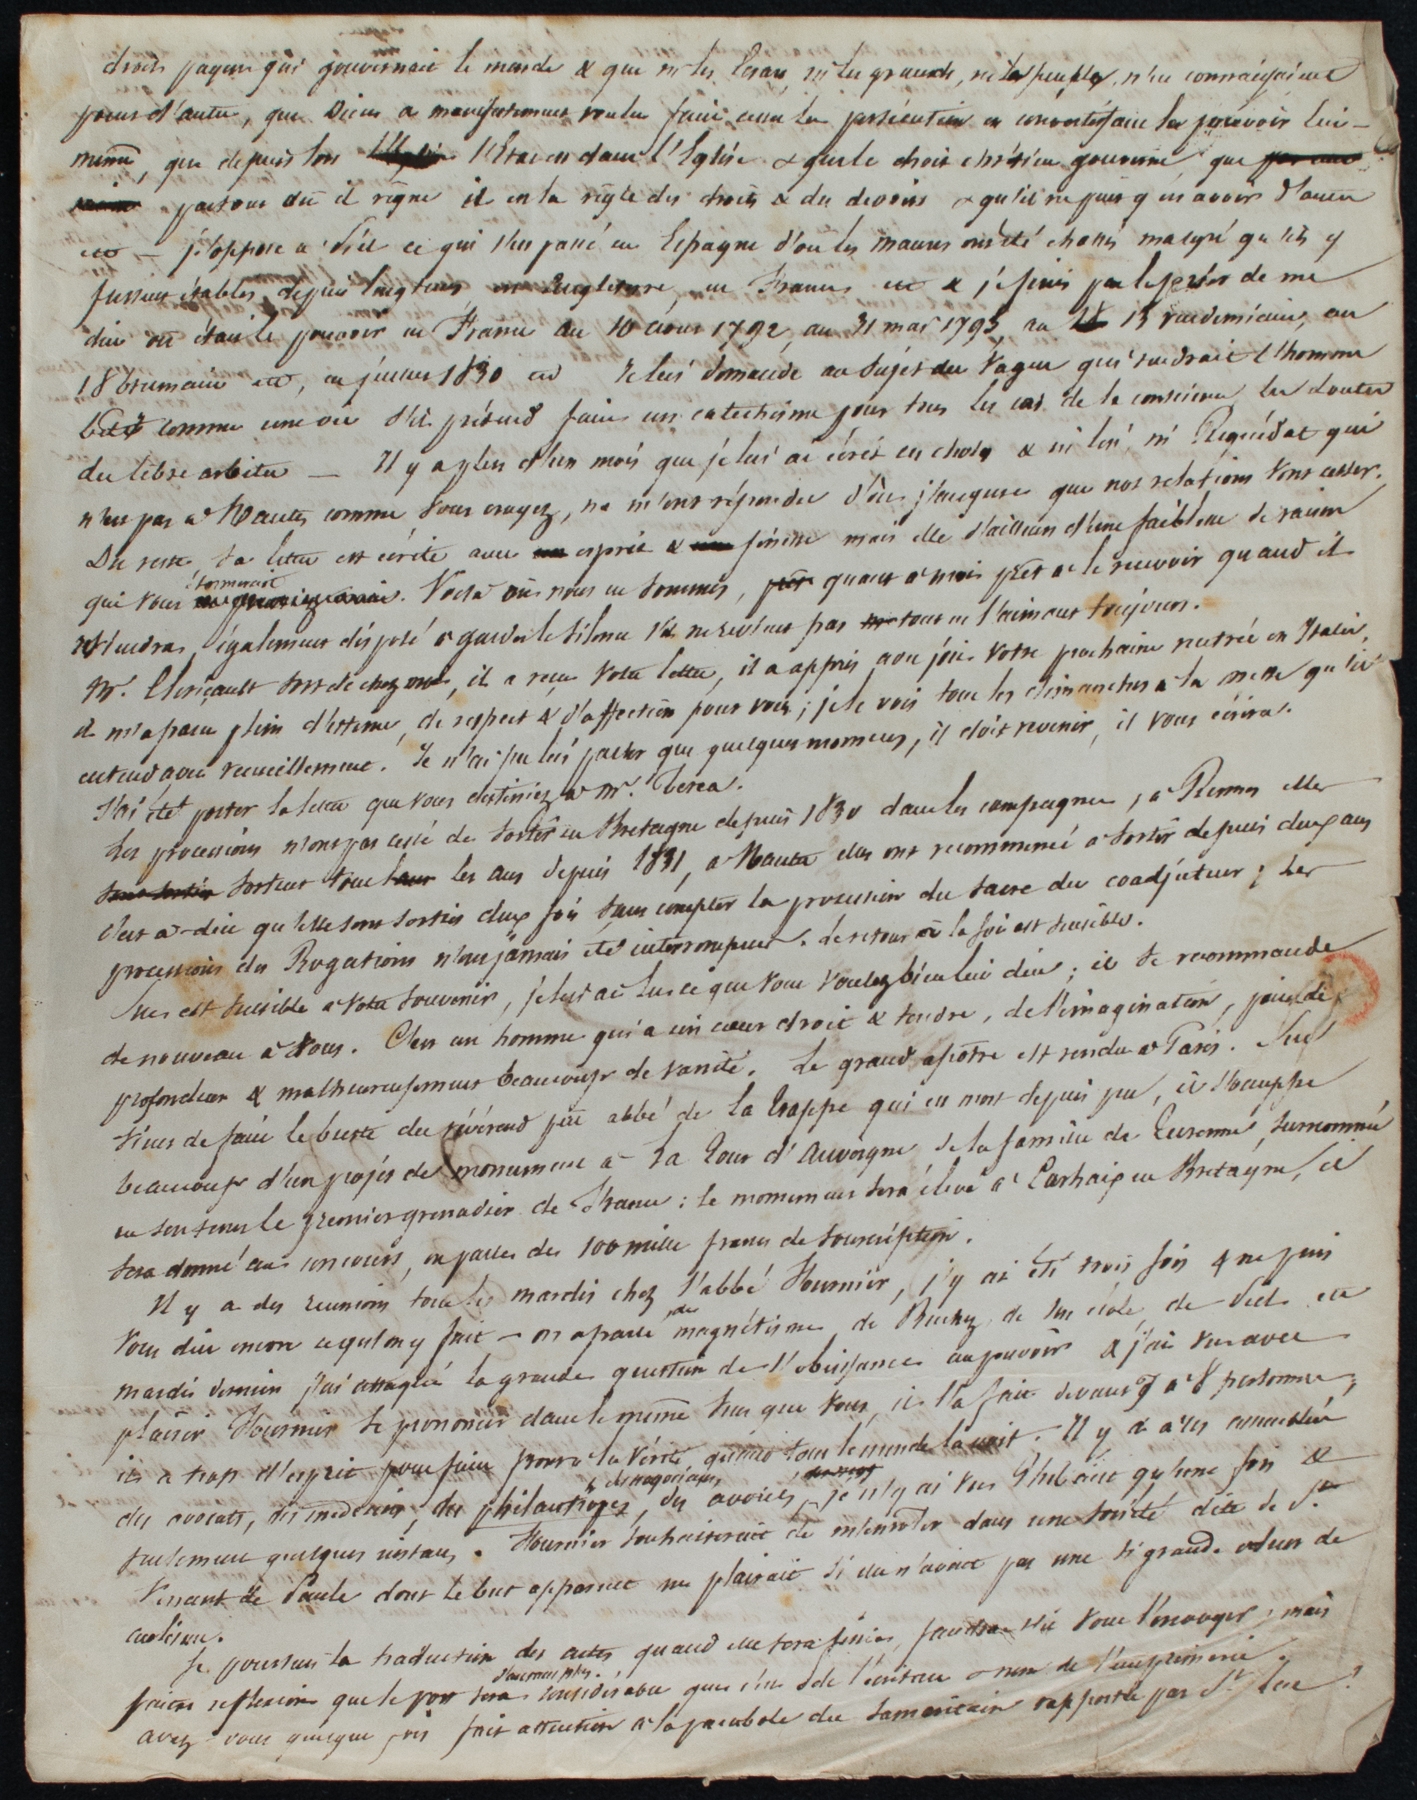 droit payen qui gouvernait le monde & que ni les Césars, ni les grands, ni les peuples, n'en connaissaient
pour d'autre, que Dieu a manifestement voulu faire cesser la persécution en convertissant le pouvoir lui-
même, que depuis lors l'Etat est dans l'Eglise & que le droit chrétien gouverne que
partout où il règne il est la règle des droits & des devoirs & qu'il ne peut y en avoir d'autre
etc — j'oppose à cela ce qui s'est passé en Espagne d'où les maures ont été chassés malgré qu'ils y
fussent établis depuis longtems en Angleterre, en France etc & je finis par le prier de me
dire où était le pouvoir en France au 10 aout 1792, au 31 mai 1793, au 13 vendemiaire, au
18 brumaire etc, en juillet 1830 etc Je lui demande au sujet du vague qui rendrait l'homme
bête comme une oie s'il prétend faire un catechisme pour tous les cas de la conscience les doutes
du libre arbitre — Il y a plus d'un mois que je lui ai écrit ces choses & ni lui, ni Requédat qui
n'est pas à Nantes comme vous croyez, ne m'ont répondu d'où j'augure que nos relations vont cesser.
Du reste, sa lettre est écrite avec esprit & finesse mais elle d'ailleurs d'une faiblesse de raison
qui vous étonnerait. Voilà où nous en sommes, quant à moi prêt à le recevoir quand il
viendra, également disposé à garder le silence s'il ne revient pas tout en l'aimant toujours.
Mr. Clériçault sort de chez moi, il a reçu votre lettre, il a appris avec joie votre prochaine rentrée en Italie,
il m'a paru plein d'estime, de respect & d'affection pour vous; je le vois tous les dimanches à la messe qu'il
entend avec recueillement. Je n'ai pu lui parler que quelques momens, il doit revenir, il vous écrira.
J'ai été porter la lettre que vous destiniez à Mr.
Les processions n'ont pas cessé de sortir en Bretagne depuis 1830 dans les campagnes, à Rennes elles
sortent tous les ans depuis 1831, à Nantes elles ont recommencé à sortir depuis deux ans
c'est à-dire qu'elles sont sorties deux fois sans compter la procession du sacre du coadjuteur; les
processions des Rogations n'ont jamais été interrompues. Le retour à la foi est sensible.
Suc est sensible à votre souvenir, je lui ai lu ce que vous voulez bien lui dire; il se recommande
de nouveau à vous. C'est un homme qui a un cœur droit & tendre, de l'imagination, peu de
profondeur & malheureusement beaucoup de vanité. Le grand apôtre est rendu à Paris. Suc
vient de faire le buste du révérend père abbé de la Trappe qui est mort depuis peu, il s'occupe
beaucoup d'un projet de monument à La Tour d'Auvergne de la famille de Turenne, surnommé
en son tems le premier grenadier de France: le monument sera élevé à Carhaix en Bretagne, il
sera donné au concours, on parle de 100 mille francs de souscription.
Il y a des reunions tous les mardis chez l'abbé Fournier, j'y ai été trois fois & ne puis
vous dire encore ce qu'on y fait — on a parlé du magnétisme, de Buchez, de son école, de etc
mardi dernier j'ai attaqué la grande question de l'obéissance au pouvoir & j'ai vu avec
plaisir Fournier se prononcer dans le même sens que vous, il l'a fait devant 7 à 8 personnes,
il a trop d'esprit pour fuir devant la vérité quand tout le monde la voit. Il y a à ces assemblées
des avocats, des médecins, des philantropes, des négocians, des avoués, je n'y ai vu Guéhaut qu'une fois &
seulement quelques instans. Fournier souhaiterait de m'enrôler dans une société dite de St
Vincent de Paule dont le but apparent me plairait si elle n'avait pas une si grande odeur de
carlisme.
Je poursuis la traduction des actes quand elle sera finie, faudra-t-il vous l'envoyer; mais
faites reflexion que le port sera désormais plus considérable que c'est de l'écriture & non de l'imprimerie.
avez vous quelque fois fait attention à la parabole du Samaritain rapportée par St Luc?